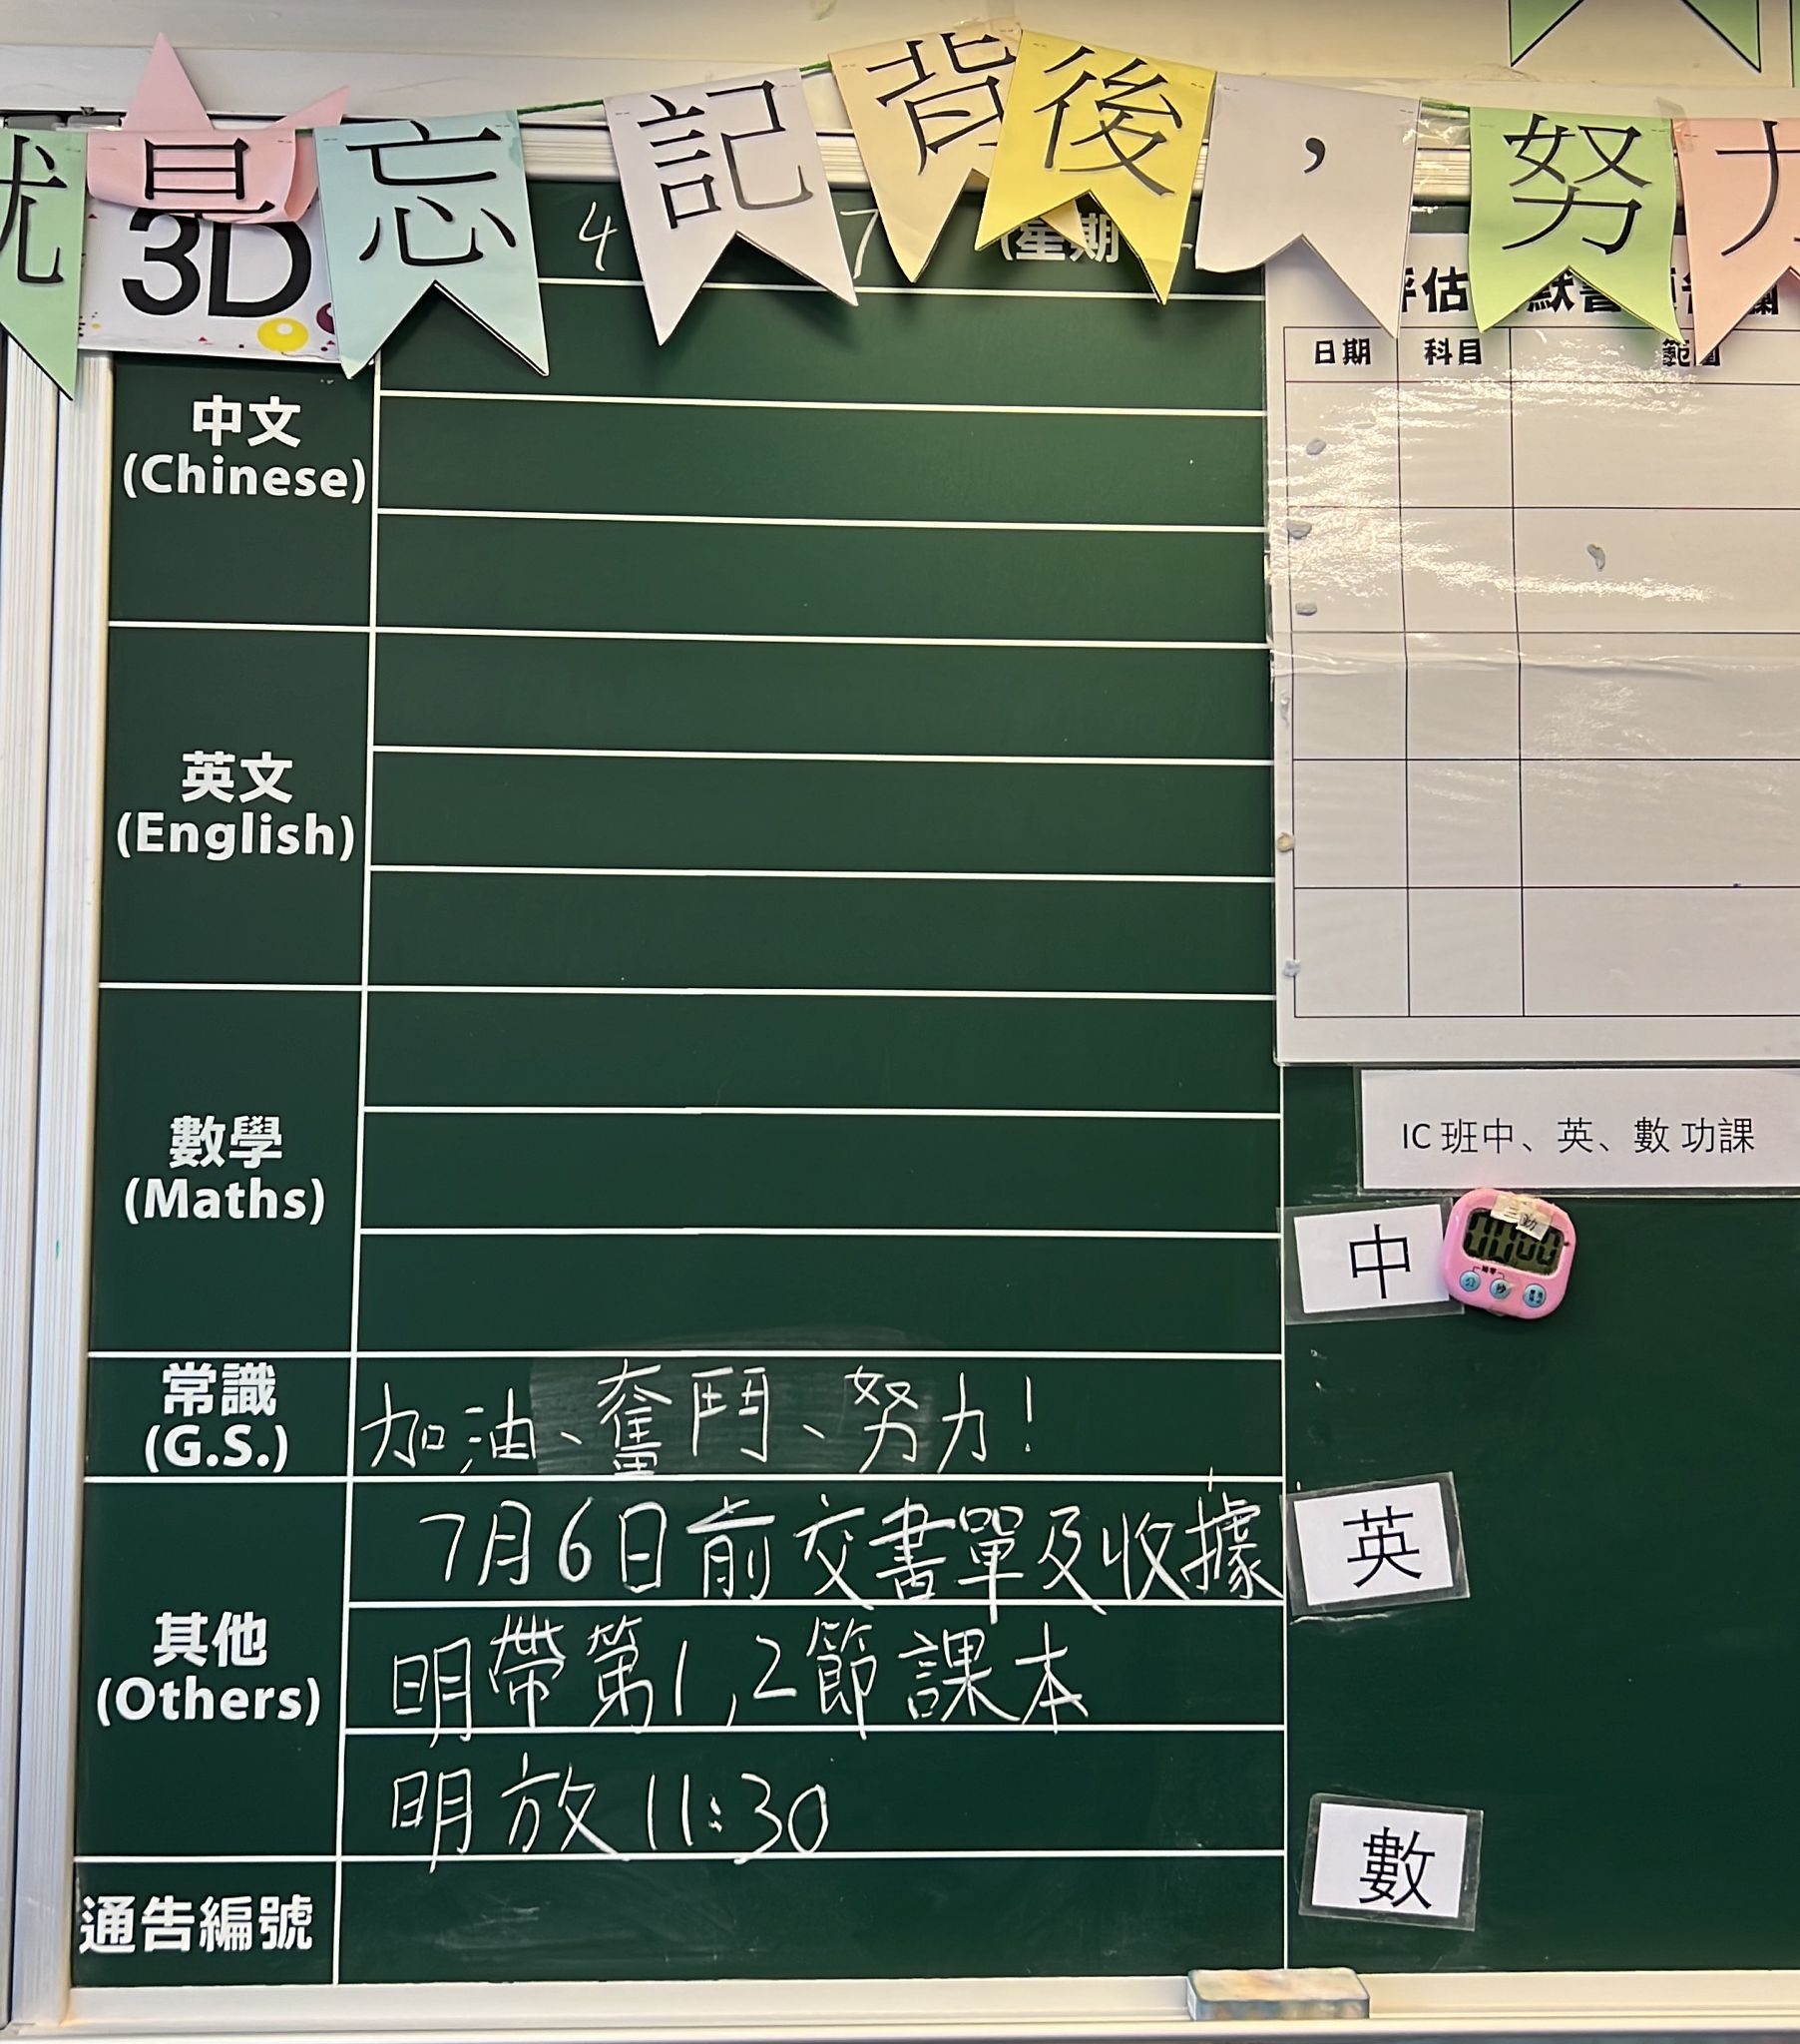 就是忘記背後，努力
3D
4 7 (星期
評估 默書
日期 科目 範圍
中文
(Chinese)
英文
(English)
數學
(Maths)
常識
(G.S.)
加油、奮鬥、努力!
其他
(Others)
7月6日前交書單及收據
明帶第1,2節課本
明放11:30
通告編號
IC 班中、英、數 功課
中
00:00
英
數